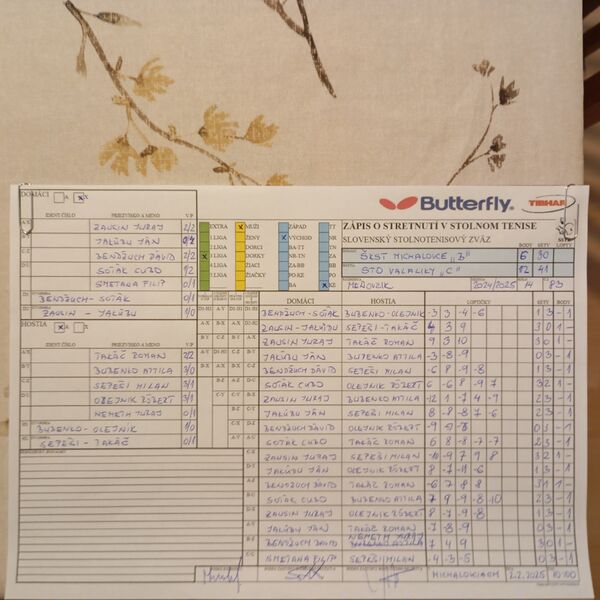 DOMÁCI A X
Butterfly
TIBHAR
IDENT. ČÍSLO PRIEZVISKO A MENO V/P
ZÁPIS O STRETNUTÍ V STOLNOM TENISE
SLOVENSKÝ STOLNOTENISOVÝ ZVÄZ
BODY SETY LOPTY
EXTRA MUŽI ZÁPAD TT
I.LIGA ŽENY VÝCHOD NR
II.LIGA DORCI BA-TT TN
III.LIGA DORKY NR-TN ZA
ŽIACI ZA-BB BB
ŽIAČKY
BA KE
ZAUSIN JURAJ 2/2
JALÚBU JÁN
BENDŽUCH DÁVID 2/2
SOŤÁK ĽUBO 1/2
SMETANA FILIP 0/1
BENDŽUCH-SOŤÁK 0/1
ZAUSIN - JALÚBU 1/0
ŠKST MICHALOVCE "B" 6 30
STO VALALIKY "C" 12 41
2024/2025 14 83
HOSTIA
IDENT. ČÍSLO PRIEZVISKO A MENO V/P
TAKÁČ ROMAN 2/2
BUŽENKO ATTILA 3/0
SEPEŠI MILAN 3/1
OLEJNIK RÓBERT 3/1
NEMETH JURAJ 0/1
BUŽENKO - OLEJNIK 1/0
SEPEŠI - TAKÁČ 0/1
DOMÁCI HOSTIA LOPTIČKY SETY BODY
BENDŽUCH-SOŤÁK BUŽENKO-OLEJNIK -3 3 -4 -6 1 3 -1
ZAUSIN-JALÚBU SEPEŠI-TAKÁČ 4 3 9 3 0 1 -
ZAUSIN JURAJ TAKÁČ ROMAN 9 3 10 3 0 1 -
JALÚBU JÁN BUŽENKO ATTILA -3 -8 -9 0 3 -1
BENDŽUCH DÁVID SEPEŠI MILAN -6 8 -9 -8 1 3 -1
SOŤÁK ĽUBO OLEJNIK RÓBERT 6 -6 8 -9 7 3 2 1 -
ZAUSIN JURAJ BUŽENKO ATTILA -12 1 -7 4 -9 2 3 -1
JALÚBU JÁN SEPEŠI MILAN 8 -8 -8 7 -6 2 3 -1
BENDŽUCH DÁVID OLEJNIK RÓBERT 0 3 -1
SOŤÁK ĽUBO TAKÁČ ROMAN 6 8 -8 -7 -7 2 3 -1
ZAUSIN JURAJ SEPEŠI MILAN -10 -9 7 9 8 3 2 1 -
JALÚBU JÁN OLEJNIK RÓBERT 8 -7 -11 -6 1 3 -1
BENDŽUCH DÁVID TAKÁČ ROMAN -6 7 8 8 3 1 1 -
SOŤÁK ĽUBO BUŽENKO ATTILA 7 9 -9 -8 -10 2 3 -1
ZAUSIN JURAJ OLEJNIK RÓBERT 8 -7 -9 -8 1 3 -1
JALÚBU JÁN TAKÁČ ROMAN -7 -8 -9 0 3 -1
BENDŽUCH DÁVID NEMETH JURAJ 7 4 9 3 0 1 -
SMETANA FILIP SEPEŠI MILAN -4 -3 -5 0 3 -1
2.2.2025 10:00